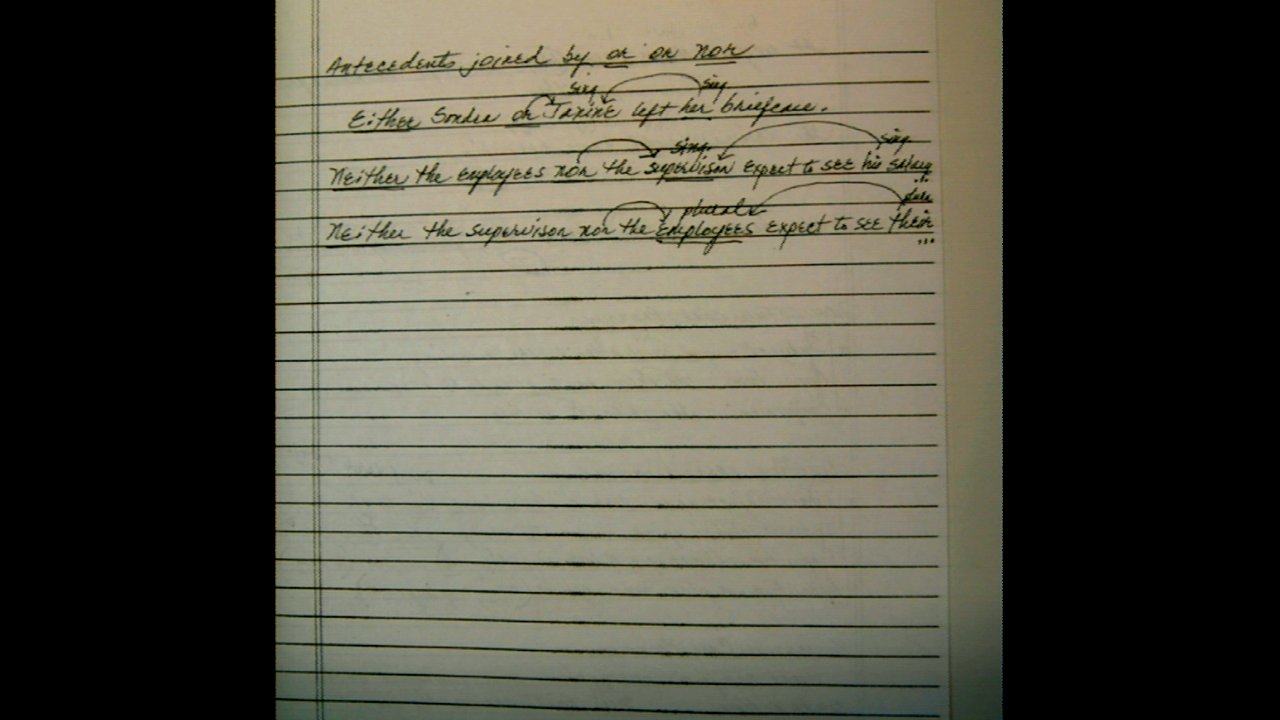 Antecedents joined by or or nor
sing sing
Either Sondra or Janine left her briefcase.
sing. sing.
Neither the employees nor the supervisor expect to see his salary ...
plural plu
Neither the supervisor nor the employees expect to see their ...